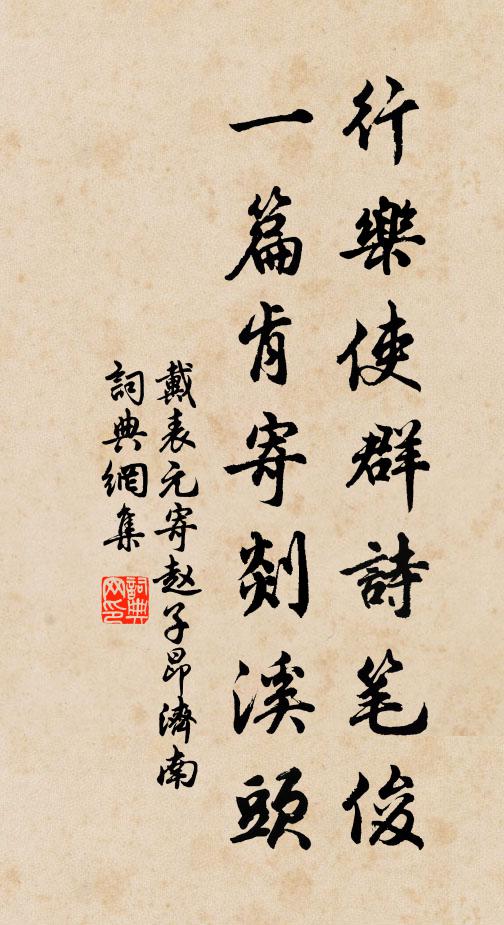 行樂使群詩笔俊
一篇肯寄剡溪頭
戴表元寄赵子昂濟南
詞典網集
詞典
网印